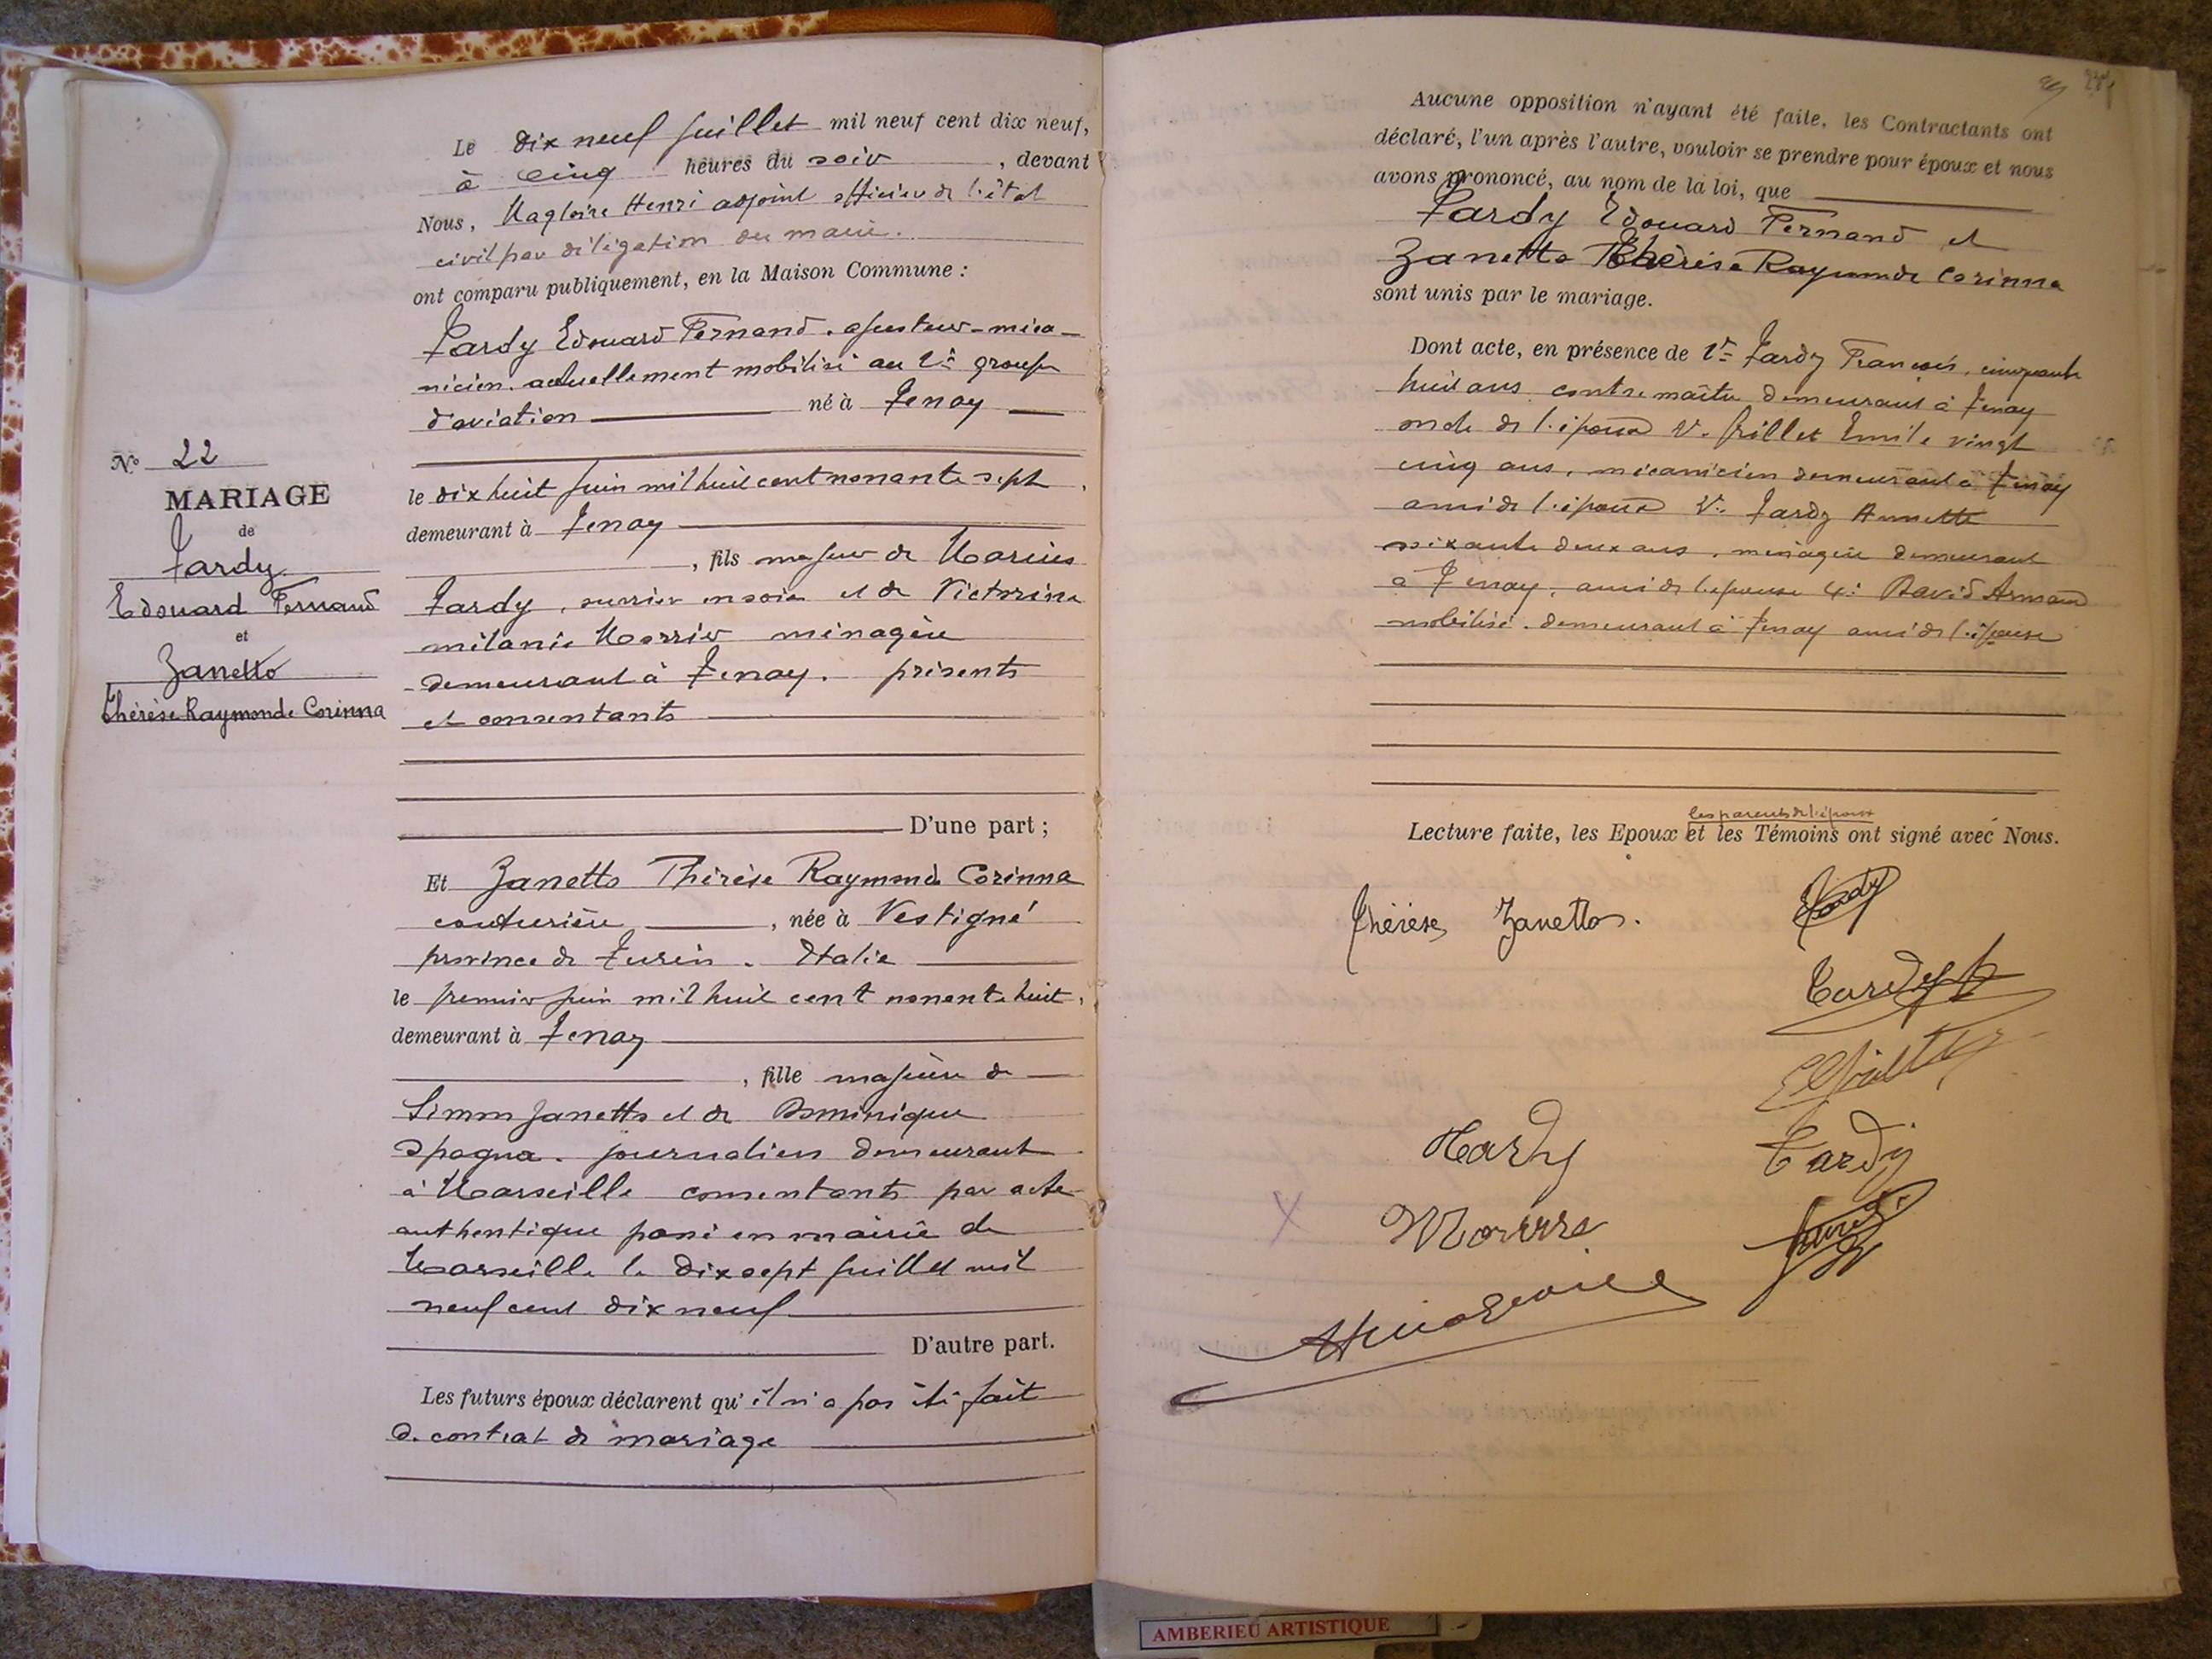 Le dix neuf juillet mil neuf cent dix neuf,
à cinq heures du soir, devant
Nous, Magloire Henri adjoint officier de l'état
civil par délégation du maire.
ont comparu publiquement, en la Maison Commune :
Tardy Edouard Fernand. ajusteur-méca-
nicien. actuellement mobilisé au 2e groupe
d'aviation né à Tenay
N° 22
MARIAGE
de
Tardy
Edouard Fernand
et
Zanetto
Thérèse Raymonde Corinna
le dix huit juin mil huit cent nonante sept,
demeurant à Tenay
, fils majeur de Marius
Tardy, ouvrier en soie et de Victorine
mélanie ménagère
demeurant à Tenay. présents
et consentants
D'une part ;
Et Zanetto Thérèse Raymonde Corinna
couturière, née à Vestigné
province de Turin. Italie
le premier juin mil huit cent nonante huit,
demeurant à Tenay
, fille majeure de
Simon Zanetto et de Dominique
Spagna. journaliers demeurant
à Marseille consentants par acte
authentique passé en mairie de
Marseille le dix sept juillet mil
neuf cent dix neuf
D'autre part.
Les futurs époux déclarent qu'il n'a pas été fait
de contrat de mariage
Aucune opposition n'ayant été faite, les Contractants ont
déclaré, l'un après l'autre, vouloir se prendre pour époux et nous
avons prononcé, au nom de la loi, que
Tardy Edouard Fernand et
Zanetto Thérèse Raymonde Corinna
sont unis par le mariage.
Dont acte, en présence de 1° Tardy François, cinquante
huit ans, contremaître demeurant à Tenay
oncle de l'époux 2° Grillet Emile vingt
cinq ans, mécanicien demeurant à Tenay
ami de l'époux Tardy Annette
soixante deux ans, ménagère demeurant
à Tenay, amie de l'épouse 4° David Armand
mobilisé. demeurant à Tenay ami de l'épouse
les parents de l'époux
Lecture faite, les Epoux et les Témoins ont signé avec Nous.
Thérèse Zanetto.
Tardy
Tardy
Tardy
Tardy
AMBERIEU ARTISTIQUE